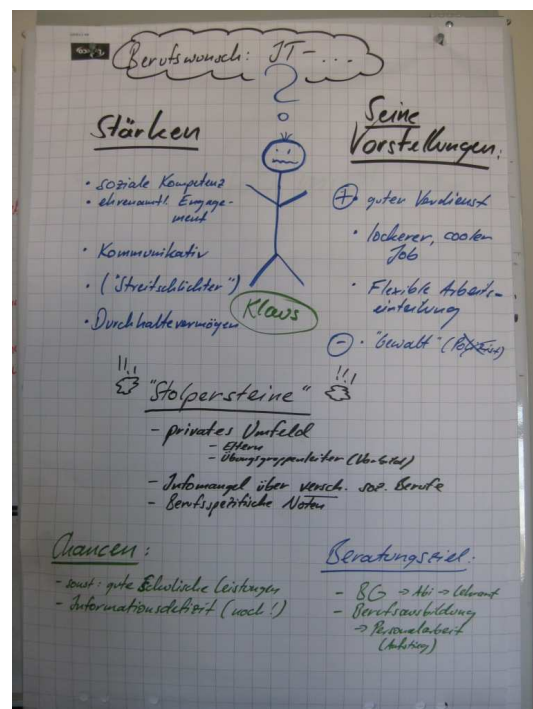 Berufswunsch: IT-...
?
Stärken
• soziale Kompetenz
• ehrenamtl. Engage-
ment
• Kommunikativ
• ("Streitschlichter")
• Durchhaltevermögen
Klaus
Seine
Vorstellungen:
+ • guter Verdienst
• lockerer, cooler
Job
• Flexible Arbeits-
einteilung
- • "Gewalt" (Polizist)
"Stolpersteine"
- privates Umfeld
- Eltern
- Übungsgruppenleiter (Vorbild)
- Infomangel über versch. soz. Berufe
- Berufsspezifische Noten
Chancen:
- sonst: gute Schulische Leistungen
- Informationsdefizit (noch!)
Beratungsziel:
- BG → Abi → Lehramt
- Berufsausbildung
→ Personalarbeit
(Aufstieg)